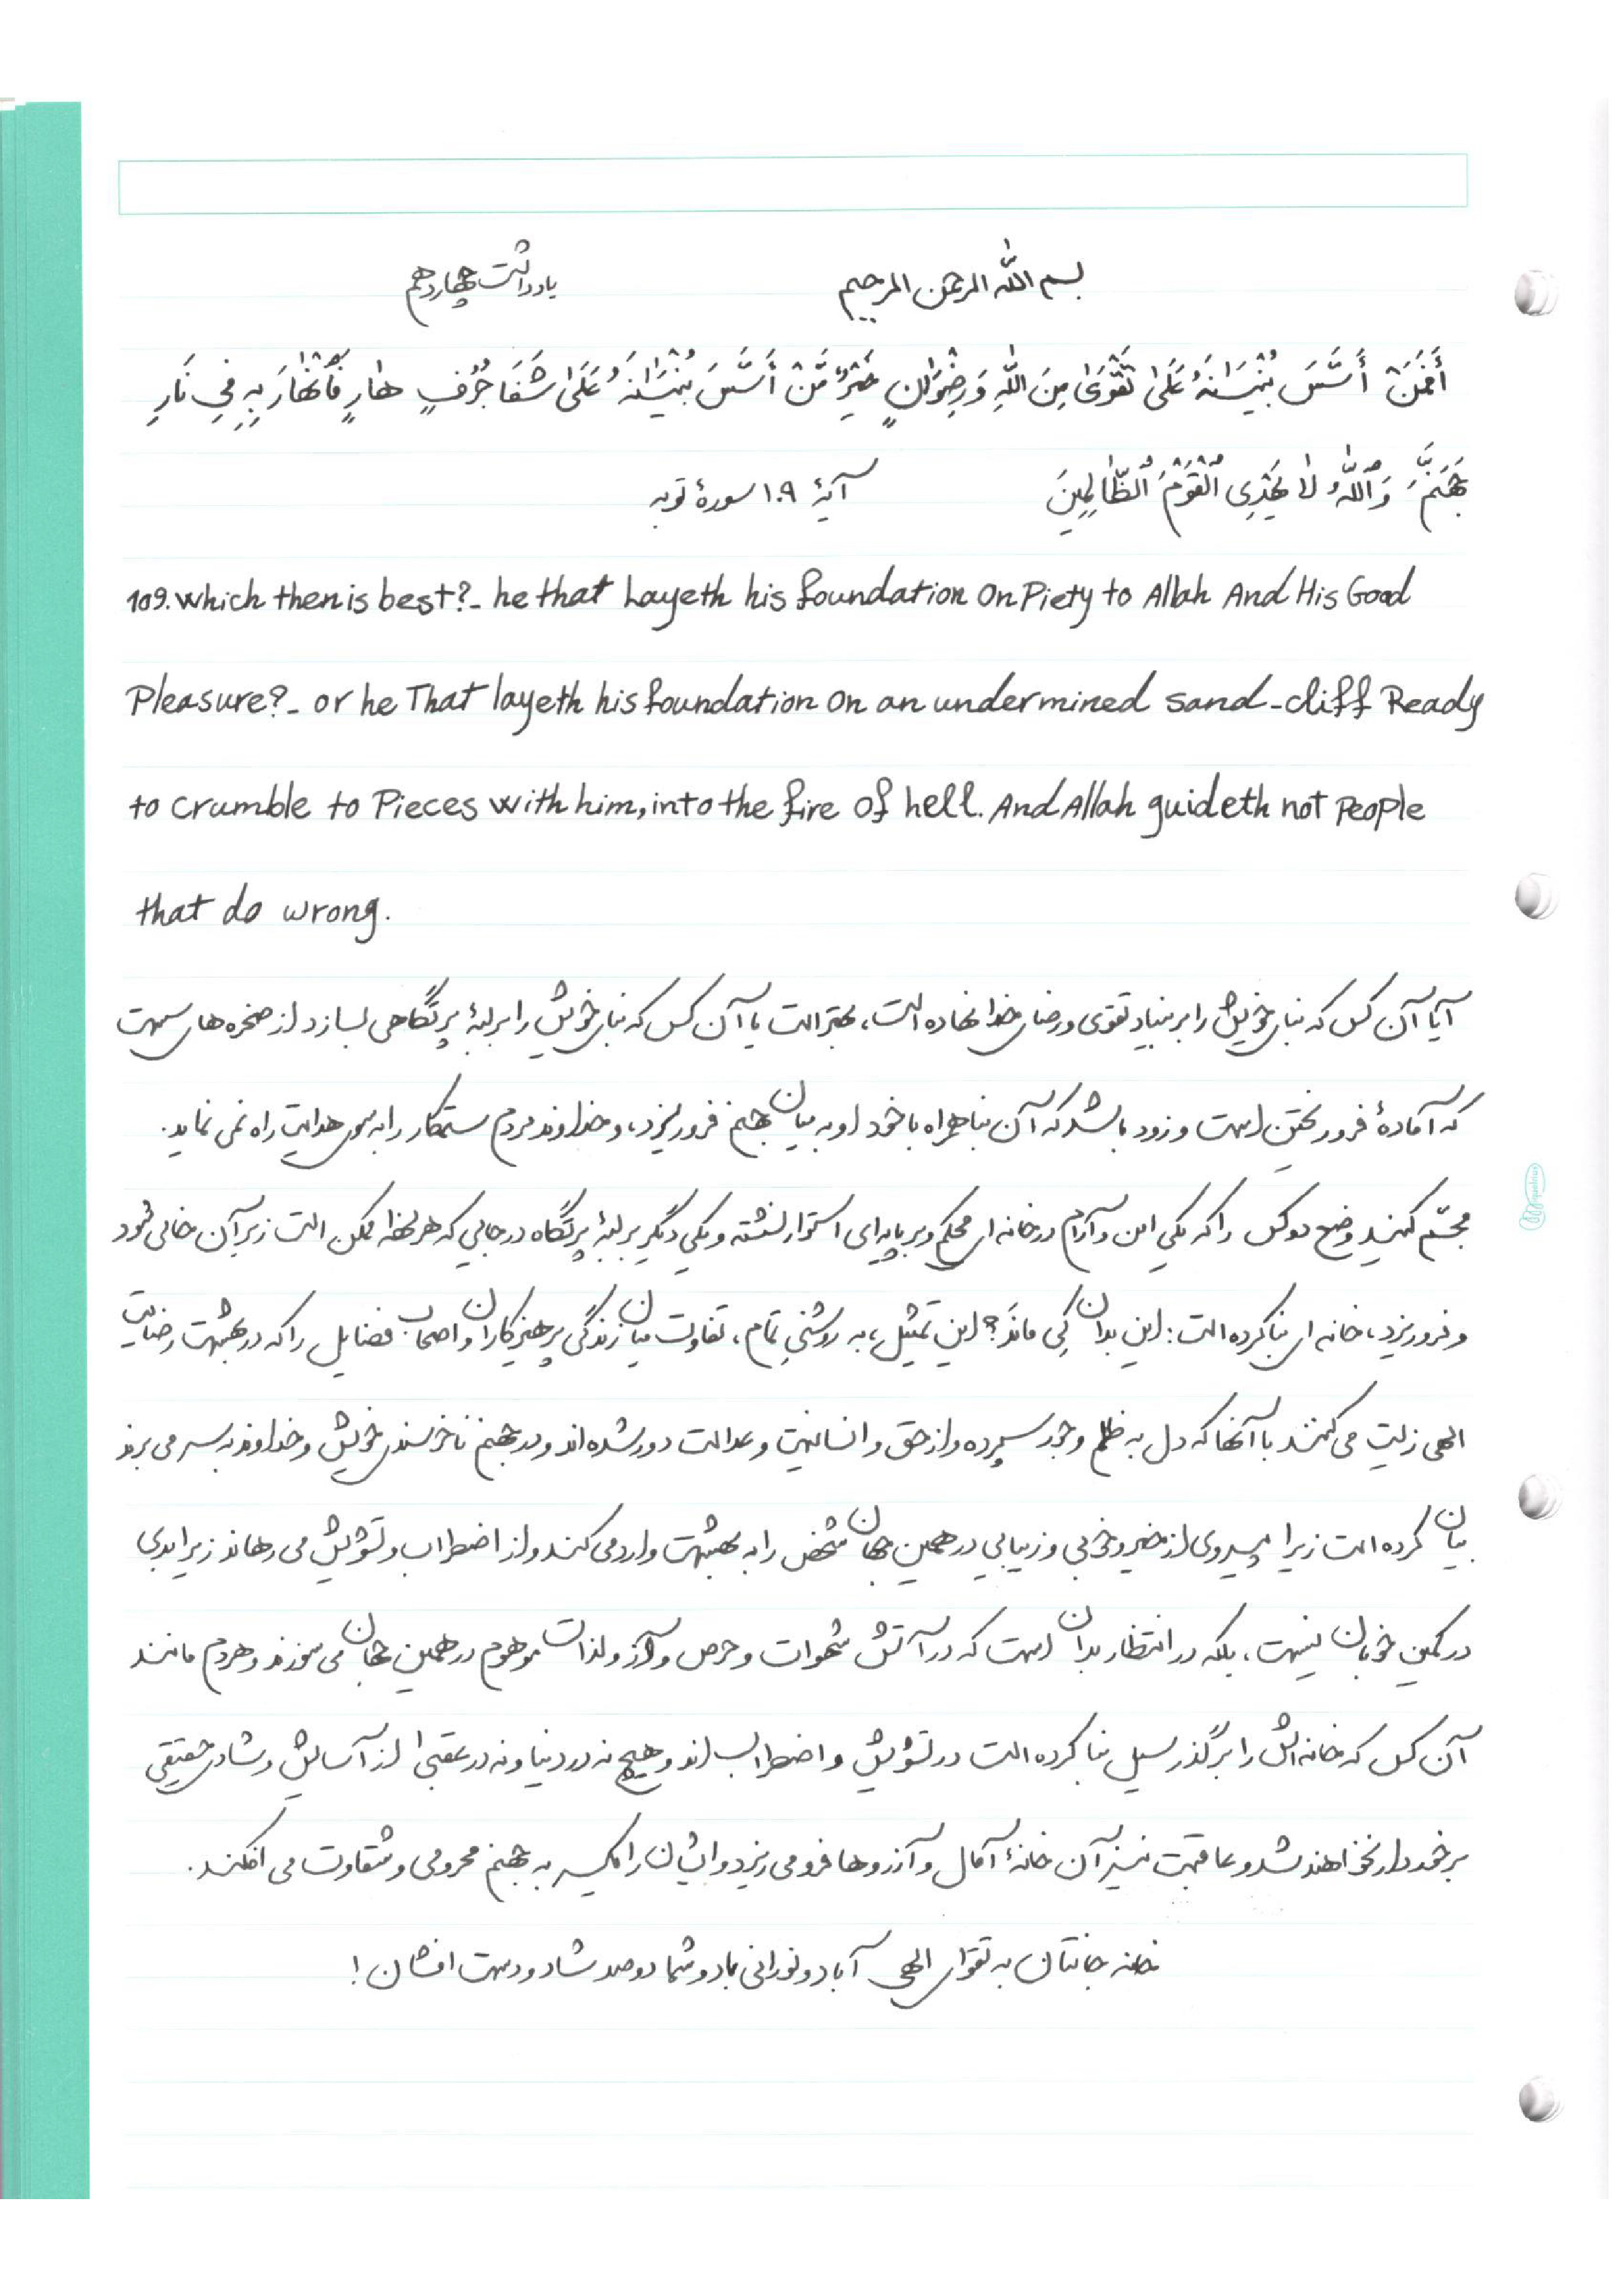 بسم الله الرحمن الرحیم یادداشت چهاردهم
أَفَمَنْ أَسَّسَ بُنْيَانَهُ عَلَىٰ تَقْوَىٰ مِنَ اللَّهِ وَرِضْوَانٍ خَيْرٌ مَّنْ أَسَّسَ بُنْيَانَهُ عَلَىٰ شَفَا جُرُفٍ هَارٍ فَانْهَارَ بِهِ فِي نَارِ
جَهَنَّمَ وَاللَّهُ لَا يَهْدِى الْقَوْمَ الظَّالِمِينَ آیهٔ ۱۰۹ سورهٔ توبه
109. which then is best?_ he that Layeth his foundation On Piety to Allah And His Good
Pleasure?_ or he That layeth his foundation On an undermined sand-cliff Ready
to crumble to Pieces with him, into the fire of hell. And Allah guideth not People
that do wrong.
آیا آن کس که بنای خویش را بر بنیاد تقوی و رضای خدا نهاده است، بهتر است یا آن کس که بنای خویش را بر لبهٔ پرتگاهی بسازد از صخره های سست
که آمادهٔ فرو ریختن است و زود باشد که آن بنا همراه با خود او به میان جهنم فرو ریزد، و خداوند مردم ستمکار را به سوی هدایت راه نمی نماید.
مجسّم کنید وضع دو کس را که یکی امن و آرام در خانه ای محکم و بر پایه ای استوار نشسته و یکی دیگر بر لبهٔ پرتگاه در جایی که هر لحظه ممکن است زیر آن خالی شود
و فرو ریزد، خانه ای بنا کرده است: این بدان کِی مانَد؟ این تمثیل، به روشنیِ تمام، تفاوت میان زندگی پرهیزکاران و اصحاب فضایل را که در بهشت رضایت
الهی زیست می کنند با آنها که دل به ظلم و جور سپرده و از حق و انسانیت و عدالت دور شده اند و در جهنم ناخرسندی خویش و خداوند به سر می برند
بیان کرده است زیرا پیروی از خیر و خوبی و زیبایی در همین جهان شخص را به بهشت وارد می کند و از اضطراب و تشویش می رهاند زیرا بدی
در کمین خوبان نیست، بلکه در انتظار بدان است که در آتش شهوات و حرص و آز و لذات موهوم در همین جهان می سوزند و هر دم مانند
آن کس که خانه اش را بر گذر سیل بنا کرده است در تشویش و اضطراب اند و هیچ نه در دنیا و نه در عقبی از آسایش و شادی حقیقی
برخوردار نخواهند شد و عاقبت نیز آن خانهٔ آمال و آرزوها فرو می ریزد و ایشان را یکسر به جهنم محرومی و شقاوت می افکند.
خانه جانتان به تقوای الهی آباد و نورانی باد و شما دوصد شاد و دست افشان!